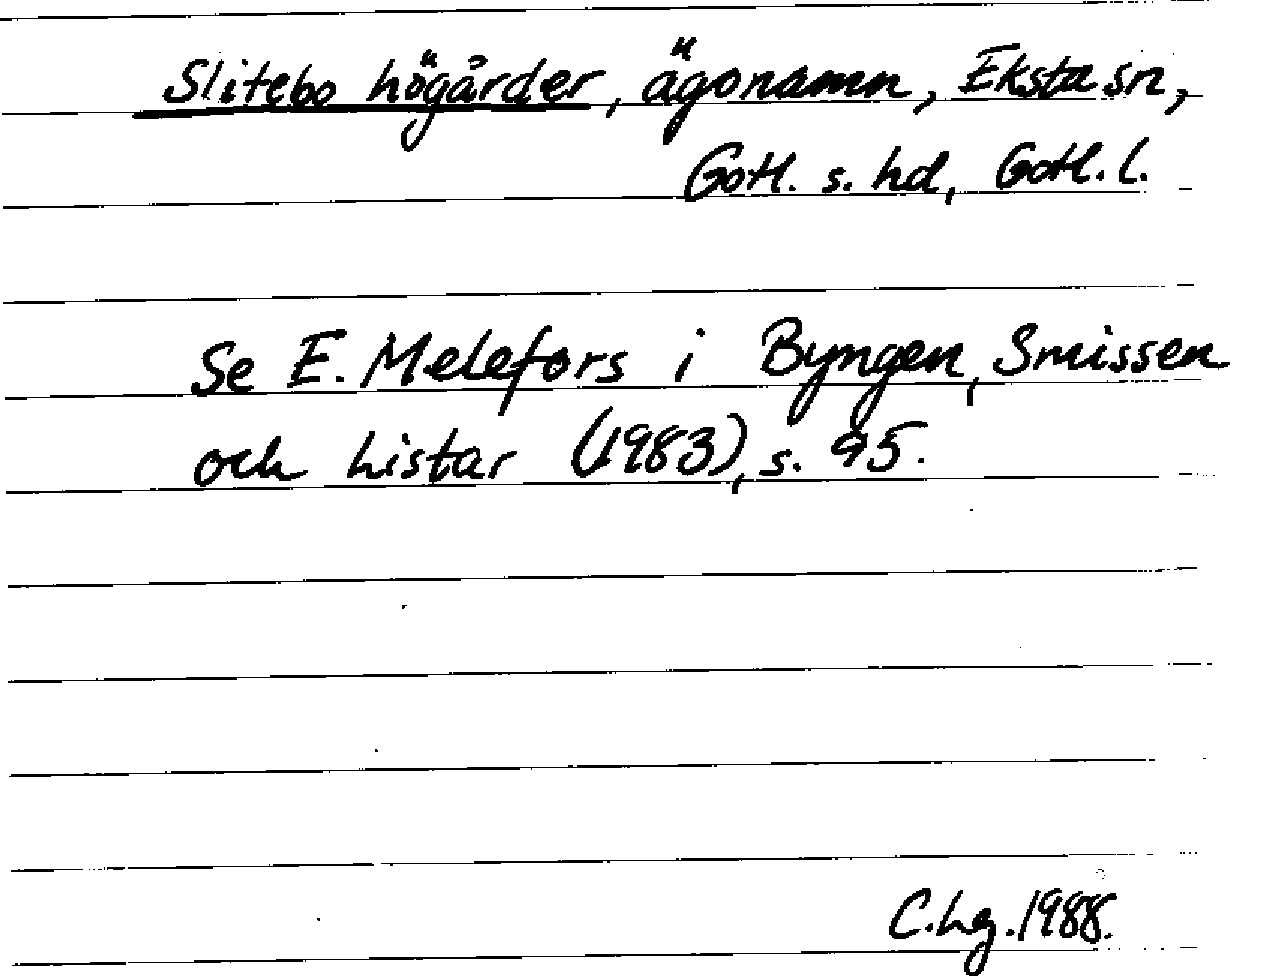 Slitebo högårder, ägonamn, Eksta sn,
Gotl. s. hd, Gotl. l.
Se E. Melefors i Byngen, Smissen
och Listar (1983), s. 95.
C.hg.1988.